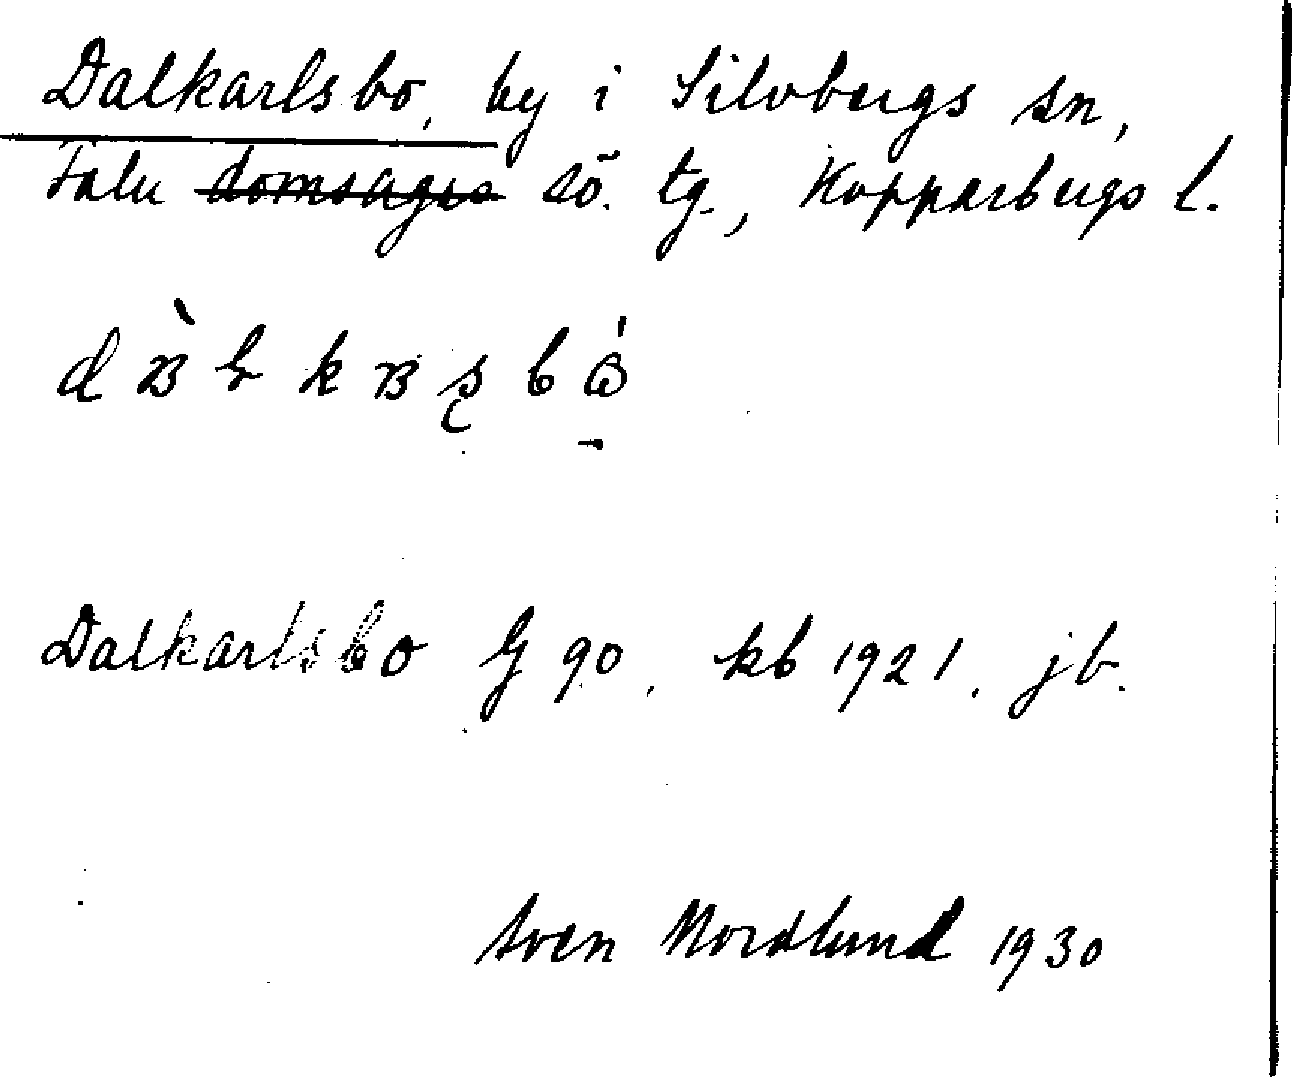 Dalkarlsbo, by i Silvbergs sn,
Falu domsagas sö. tg., Kopparbergs l.
Dalkarlsbo G 90, kb 1921, jb.
Sven Nordlund 1930